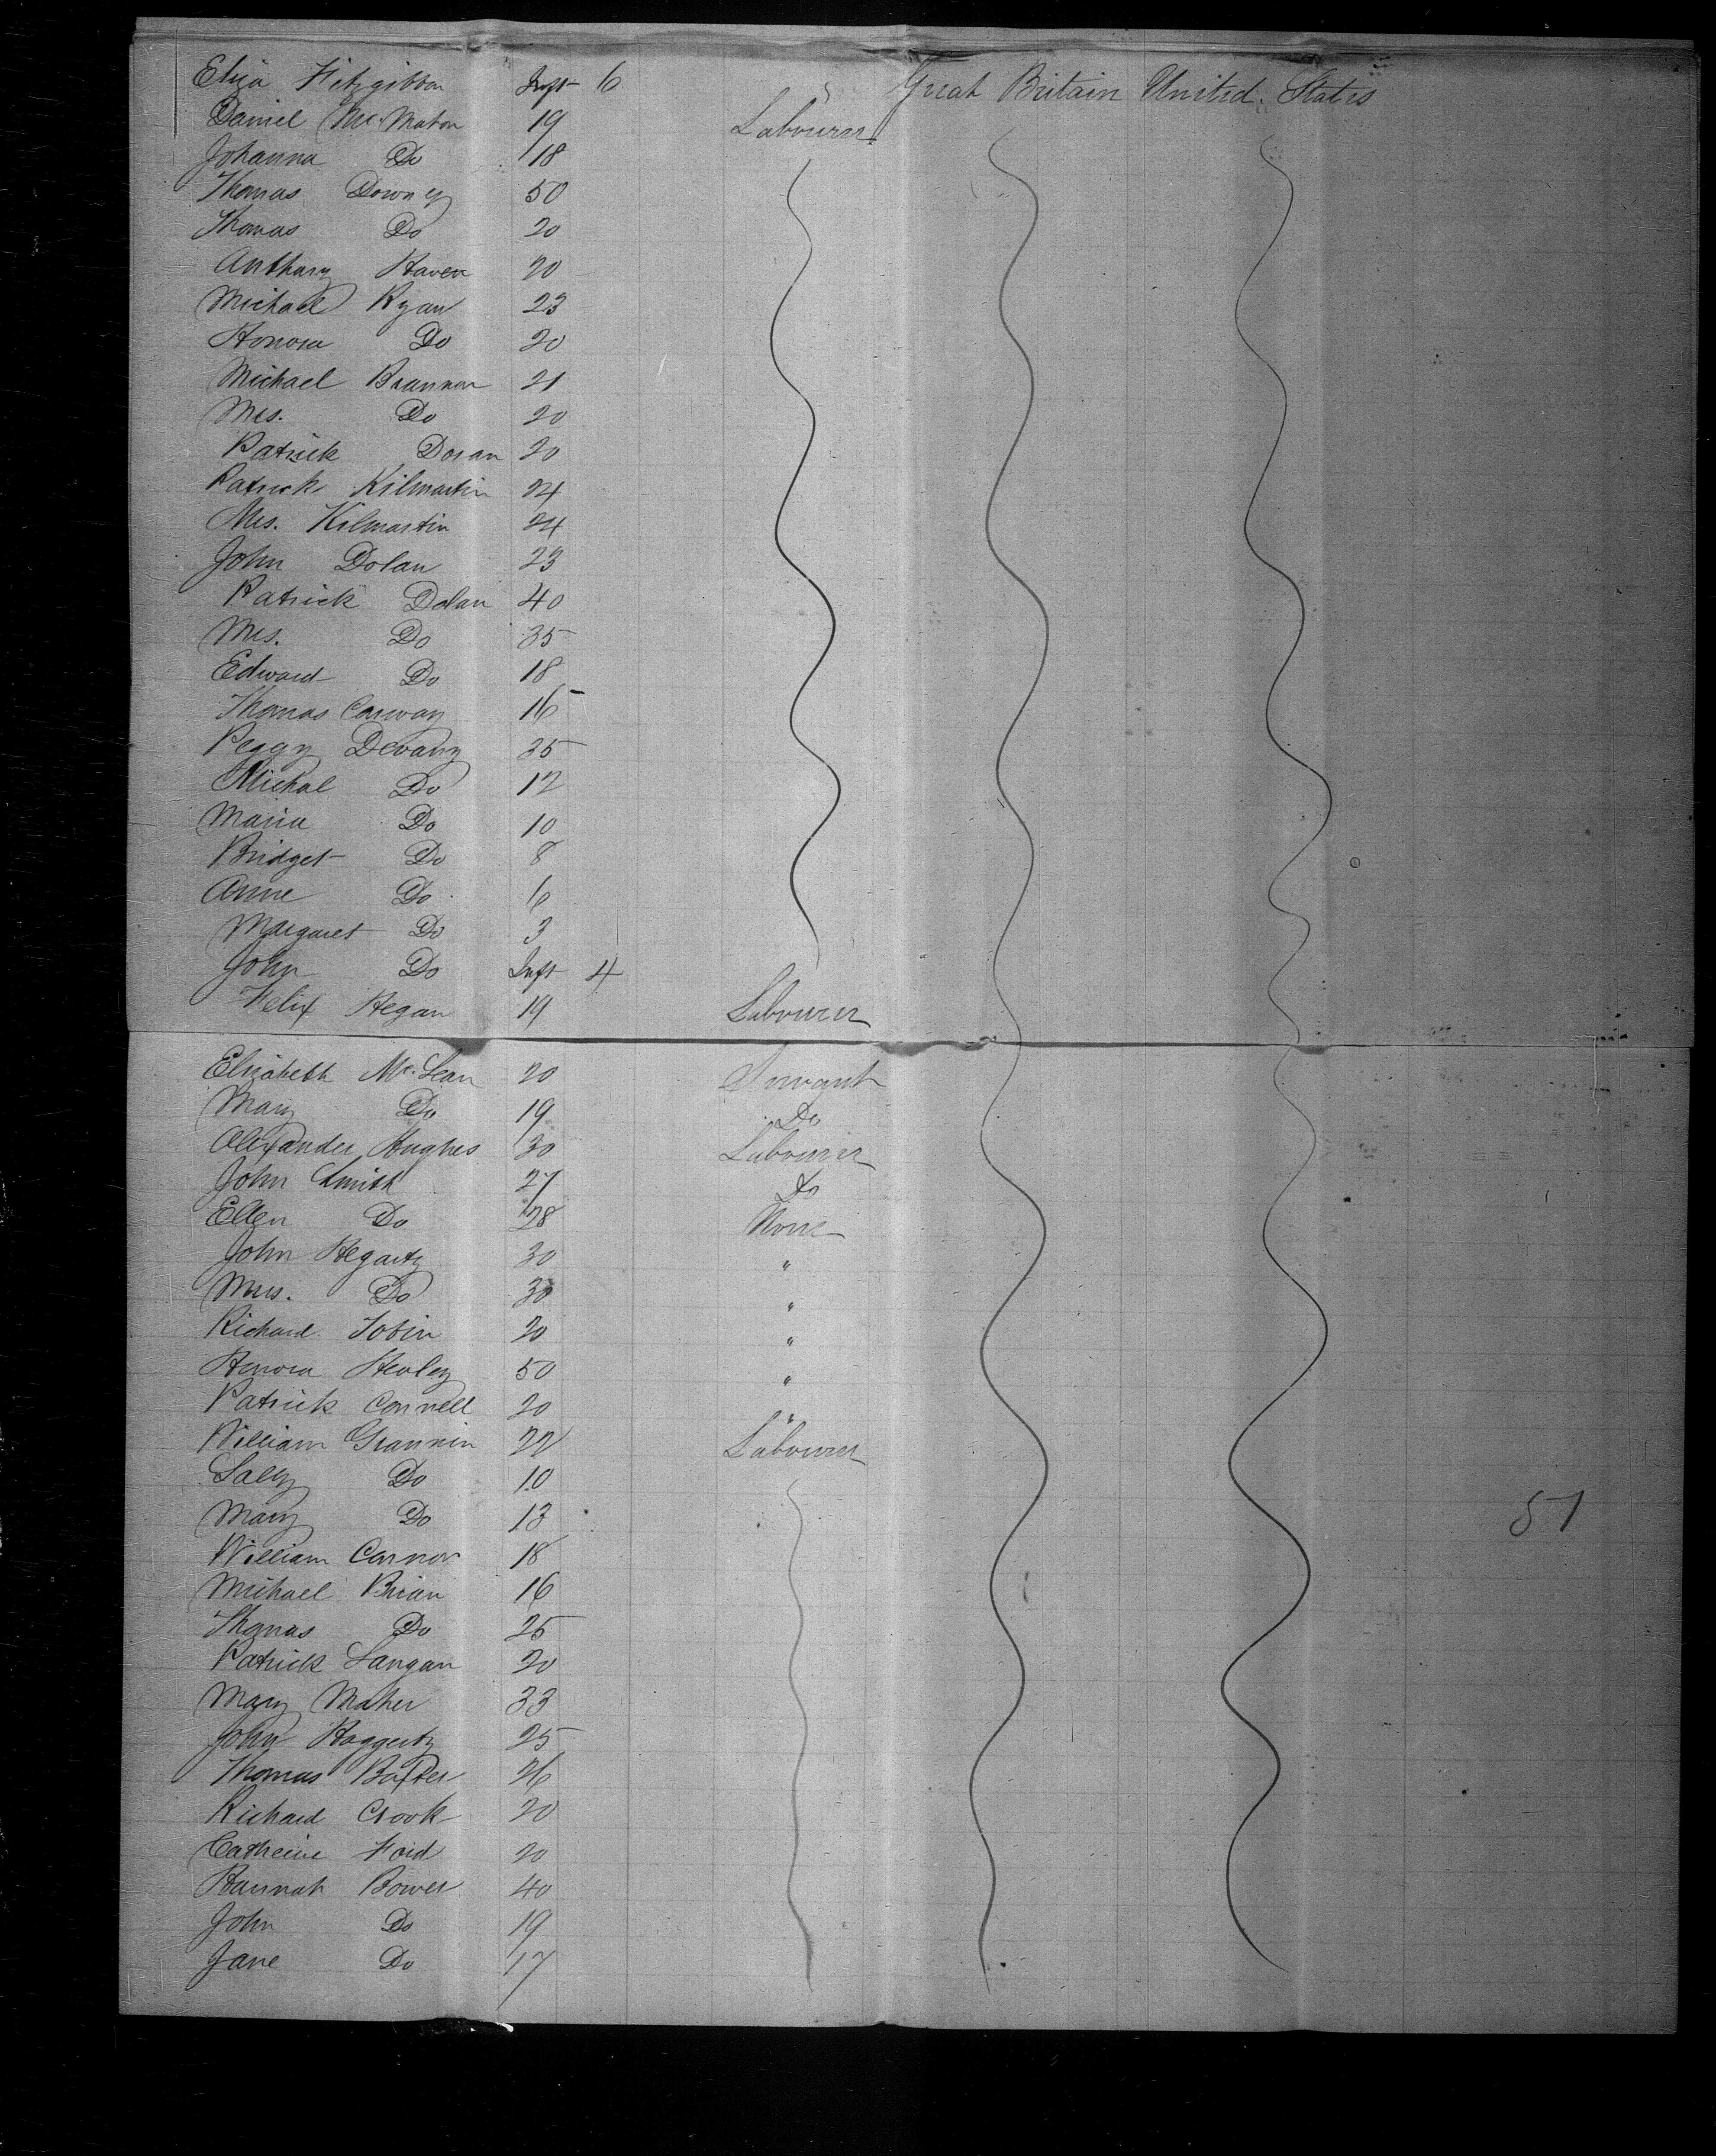 Eliza Fitzgibbon Inft 6 " Great Britain United States
Daniel McMahon 19 Labourer
Johanna Do 18
Thomas Downey 50
Thomas Do 20
Anthony Haven 20
Michael Ryan 23
Honora Do 20
Michael Brannon 21
Mrs. Do 20
Patrick Doran 20
Patrick Kilmartin 24
Mrs. Kilmartin 24
John Dolan 23
Patrick Dolan 40
Mrs. Do 35
Edward Do 18
Thomas Conway 16
Peggy Devany 35
Michal Do 12
Maria Do 10
Bridget Do 8
Anne Do 6
Margaret Do 3
John Do Inft 4
Felix Hegan 19 Labourer
Elizabeth McLean 20 Servant
Mary Do 19 Do
Alexander Hughes 30 Labourer
John Smith 27 Do
Ellen Do 28 None
John Hegarty 30 "
Mrs. Do 30 "
Richard Tobin 20 "
Honora Healey 50 "
Patrick Connell 20 "
William Grannin 22 Labourer
Sally Do 10
Mary Do 13
William Connor 18
Michael Brian 16
Thomas Do 25
Patrick Langan 20
Mary Maher 33
John Haggerty 25
Thomas Baxter 26
Richard Crook 20
Catherine Ford 20
Hannah Bower 40
John Do 19
Jane Do 17
51